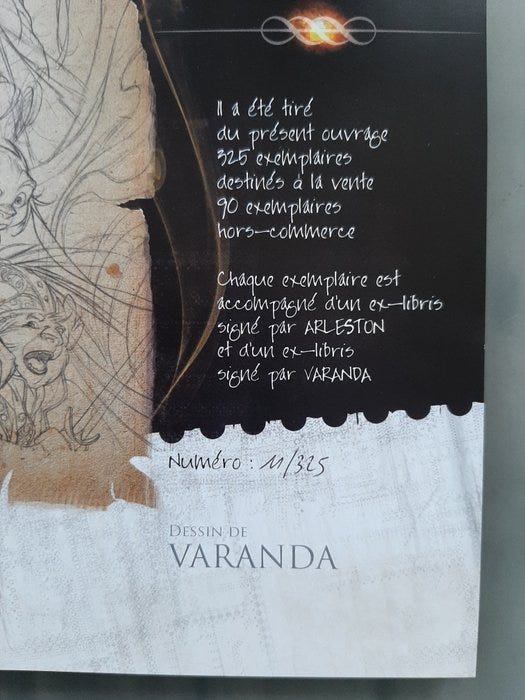 Il a été tiré
du présent ouvrage
325 exemplaires
destinés à la vente
90 exemplaires
hors-commerce
Chaque exemplaire est
accompagné d'un ex-libris
signé par ARLESTON
et d'un ex-libris
signé par VARANDA
Numéro : 11/325
DESSIN DE
VARANDA